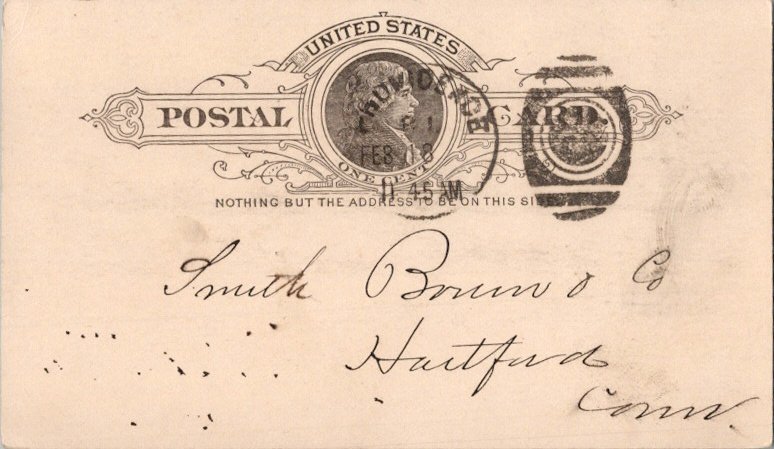 UNITED STATES
POSTAL CARD.
ONE CENT
PROVIDENCE
FEB 18
11 45 AM
NOTHING BUT THE ADDRESS TO BE ON THIS SIDE.
Smith Bourn & Co
Hartford
Conn.